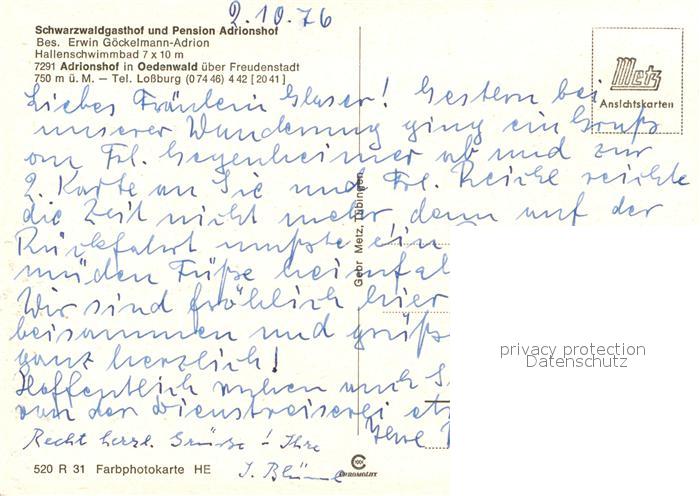 2.10.76
Schwarzwaldgasthof und Pension Adrionshof
Bes. Erwin Göckelmann-Adrion
Hallenschwimmbad 7 x 10 m
7291 Adrionshof in Oedenwald über Freudenstadt
750 m ü. M. – Tel. Loßburg (0 74 46) 4 42 [20 41]
Metz
Ansichtskarten
Liebes Fräulein Glaser! Gestern bei
unserer Wanderung ging ein Gruß
an Frl. Gegenheimer ab und zur
2. Karte an Sie und Frl. Reichl reichte
die Zeit nicht mehr, denn auf der
Rückfahrt mußte ein
müden Füße heimfal
Wir sind fröhlich hier
beisammen und grüß
ganz herzlich!
Hoffentlich ruhen auch S
von der Dienstreiserei et
Ihre
Recht herzl. Grüsse! Ihre
I.
Gebr Metz, Tübingen
privacy protection
Datenschutz
520 R 31 Farbphotokarte HE
CHROMOLUX